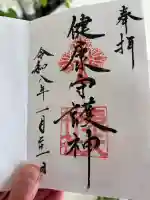 奉拝
健康守護神
令和八年一月廿一日